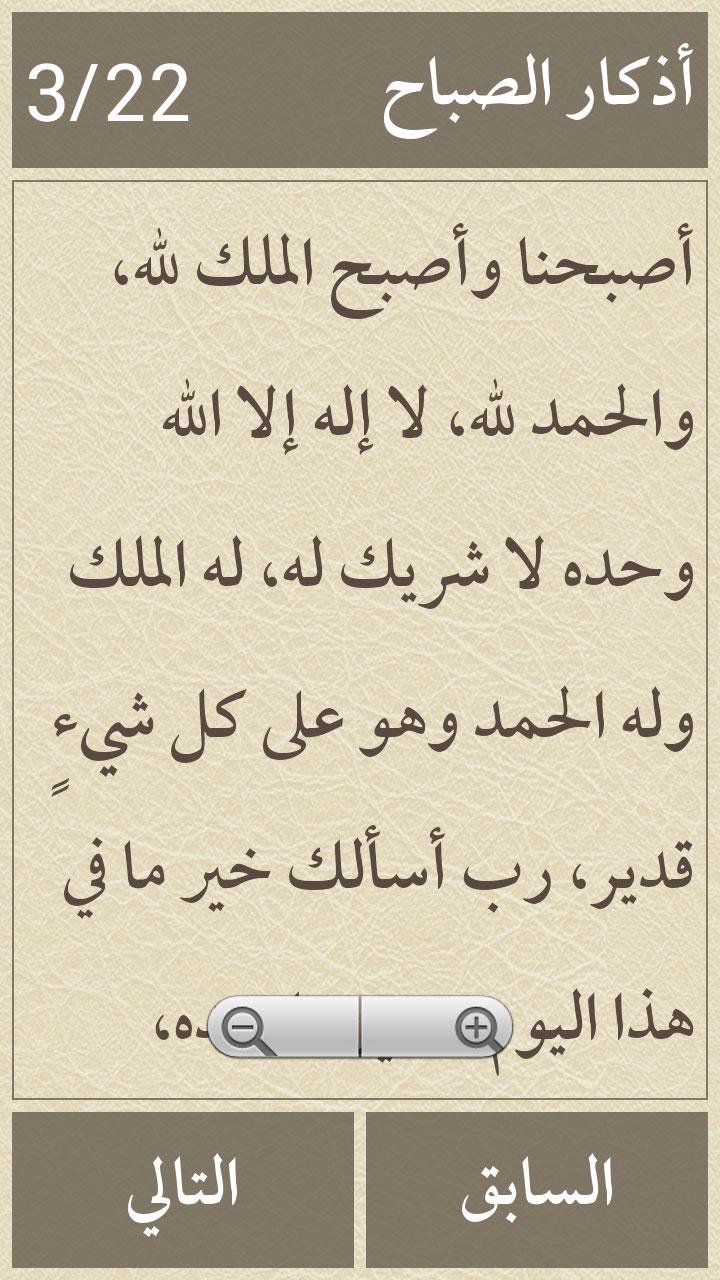 أذكار الصباح
3/22
أصبحنا وأصبح الملك لله،
والحمد لله، لا إله إلا الله
وحده لا شريك له، له الملك
وله الحمد وهو على كل شيءٍ
قدير، رب أسألك خير ما في
هذا اليوم
السابق
التالي